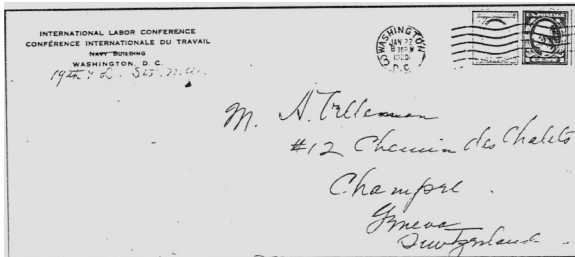 INTERNATIONAL LABOR CONFERENCE
CONFÉRENCE INTERNATIONALE DU TRAVAIL
NAVY BUILDING
WASHINGTON, D. C.
19th & L. Sts. N.W.
WASHINGTON
JAN 22
D.C.
M. A. Tilleman
#12 Chemin des Chalets
Champel
Geneva
Switzerland